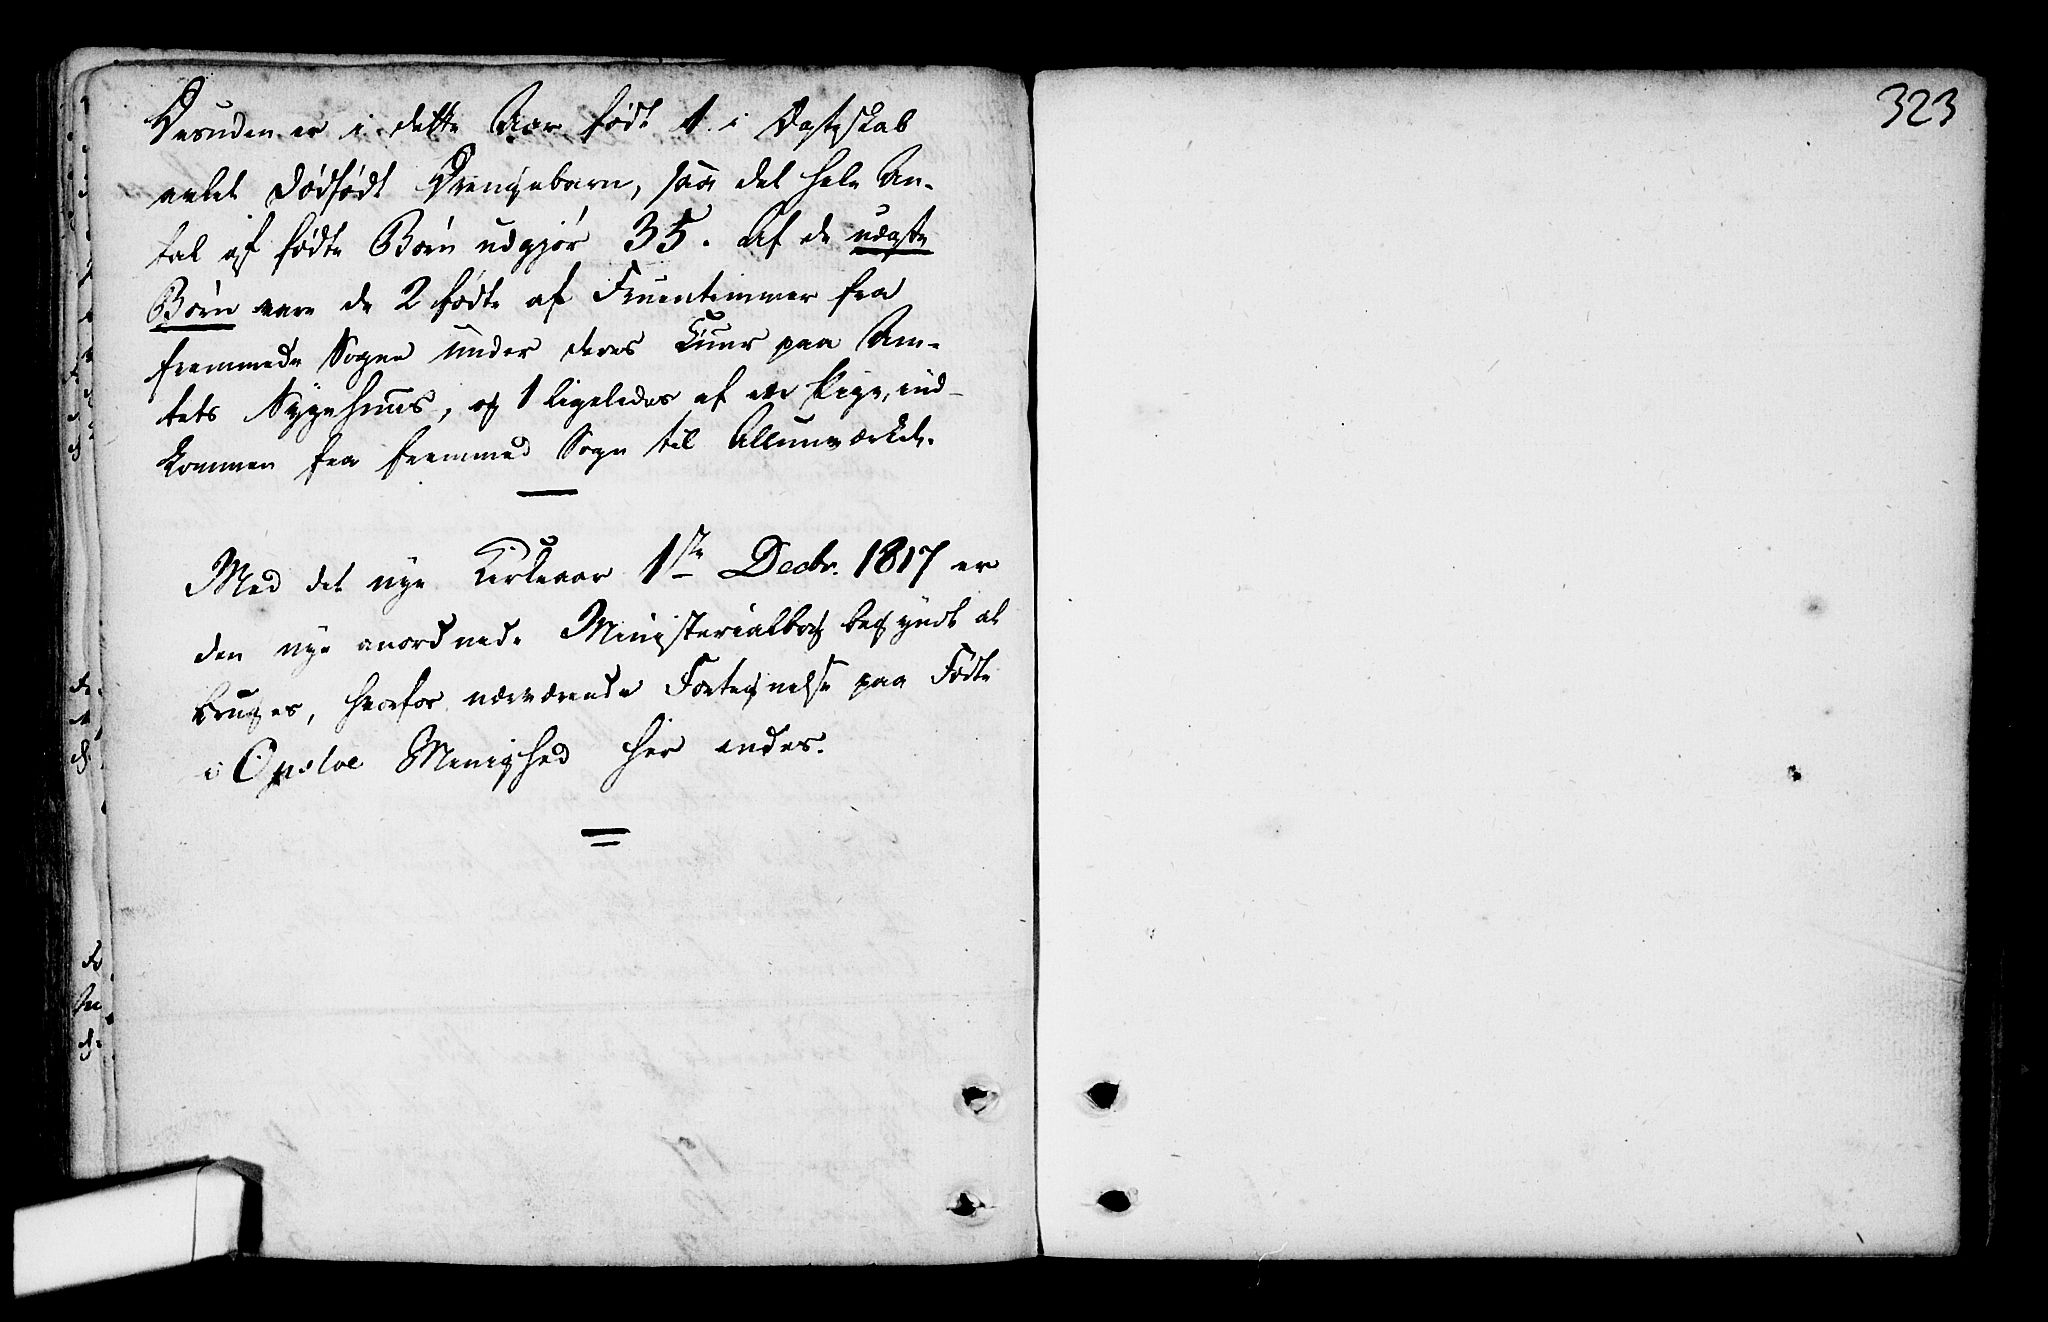 Desuden er i dette Aar født 1. i Ægteskab
avlet dødfødt Drengebarn, saa det hele An-
tal af fødte Børn udgjør 35. Af de uægte
Børn vare de 2 fødte af Fruentimmer fra
fremmede Sogne under deres Cuur paa Am-
tets Sygehuus, og 1 ligeledes af en Pige, ind-
kommen fra fremmed Sogn til Allunværket.
Med det nye Kirkeaar 1ste Decbr. 1817 er
den nye anordnede Ministerialbog begyndt at
bruges, hvorfor nærværende Fortegnelse paa Fødte
i Opsloe Menighed her endes.
323